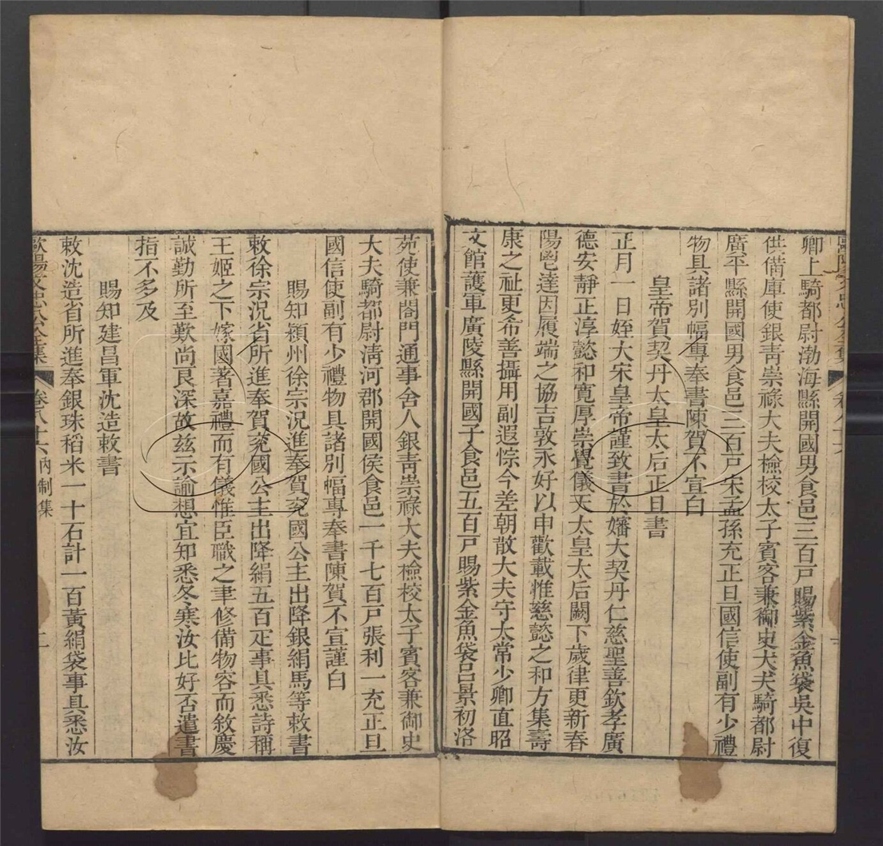 卿上騎都尉渤海縣開國男食邑三百戸賜紫金魚袋吳中復
供備庫使銀青崇祿大夫檢校太子賓客兼御史大夫騎都尉
廣平縣開國男食邑三百戸宋孟孫充正旦國信使副有少禮
物具諸別幅專奉書陳賀不宣白
皇帝賀契丹太皇太后正旦書
正月一日姪大宋皇帝謹致書於嬸大契丹仁慈聖善欽孝廣
德安靜正淳懿和寬厚崇覺儀天太皇太后闕下歲律更新春
陽鬯達因履端之協吉敦永好以申歡載惟慈懿之和方集壽
康之祉更希善攝用副遐悰今差朝散大夫守太常少卿直昭
文館護軍廣陵縣開國子食邑五百戸賜紫金魚袋呂景初洛
苑使兼閤門通事舍人銀青崇祿大夫檢校太子賓客兼御史
大夫騎都尉清河郡開國侯食邑一千七百戸張利一充正旦
國信使副有少禮物具諸別幅專奉書陳賀不宣謹白
賜知潁州徐宗況進奉賀兖國公主出降銀絹馬等敕書
敕徐宗況省所進奉賀兖國公主出降絹五百疋事具悉詩稱
王姬之下嫁國著嘉禮而有儀惟臣職之聿修備物容而敘慶
誠勤所至歎尚良深故兹示諭想宜知悉冬寒汝比好否遣書
指不多及
賜知建昌軍沈造敕書
敕沈造省所進奉銀珠稻米一十石計一百黃絹袋事具悉汝
歐陽文忠公全集
卷八十六
內制集
二